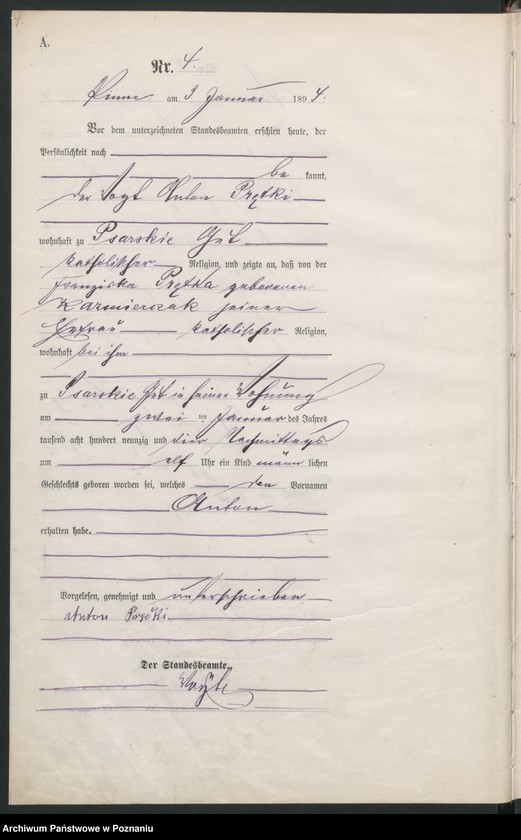 A.
Nr. 4.
Pinne am 3. Januar 1894.
Vor dem unterzeichneten Standesbeamten erschien heute, der
Persönlichkeit nach
be kannt,
der Vogt Anton Prętki
wohnhaft zu Psarskie Gut
katholischer Religion, und zeigte an, daß von der
Franziska Prętka geborenen
Kazmierczak seiner
Ehefrau katholischer Religion,
wohnhaft bei ihm
zu Psarskie Gut in seiner Wohnung
am zwei ten Januar des Jahres
tausend acht hundert neunzig und vier Nachmittags
um elf Uhr ein Kind männ lichen
Geschlechts geboren worden sei, welches den Vornamen
Anton
erhalten habe.
Vorgelesen, genehmigt und unterschrieben
Anton Prętki.
Der Standesbeamte.
Archiwum Państwowe w Poznaniu